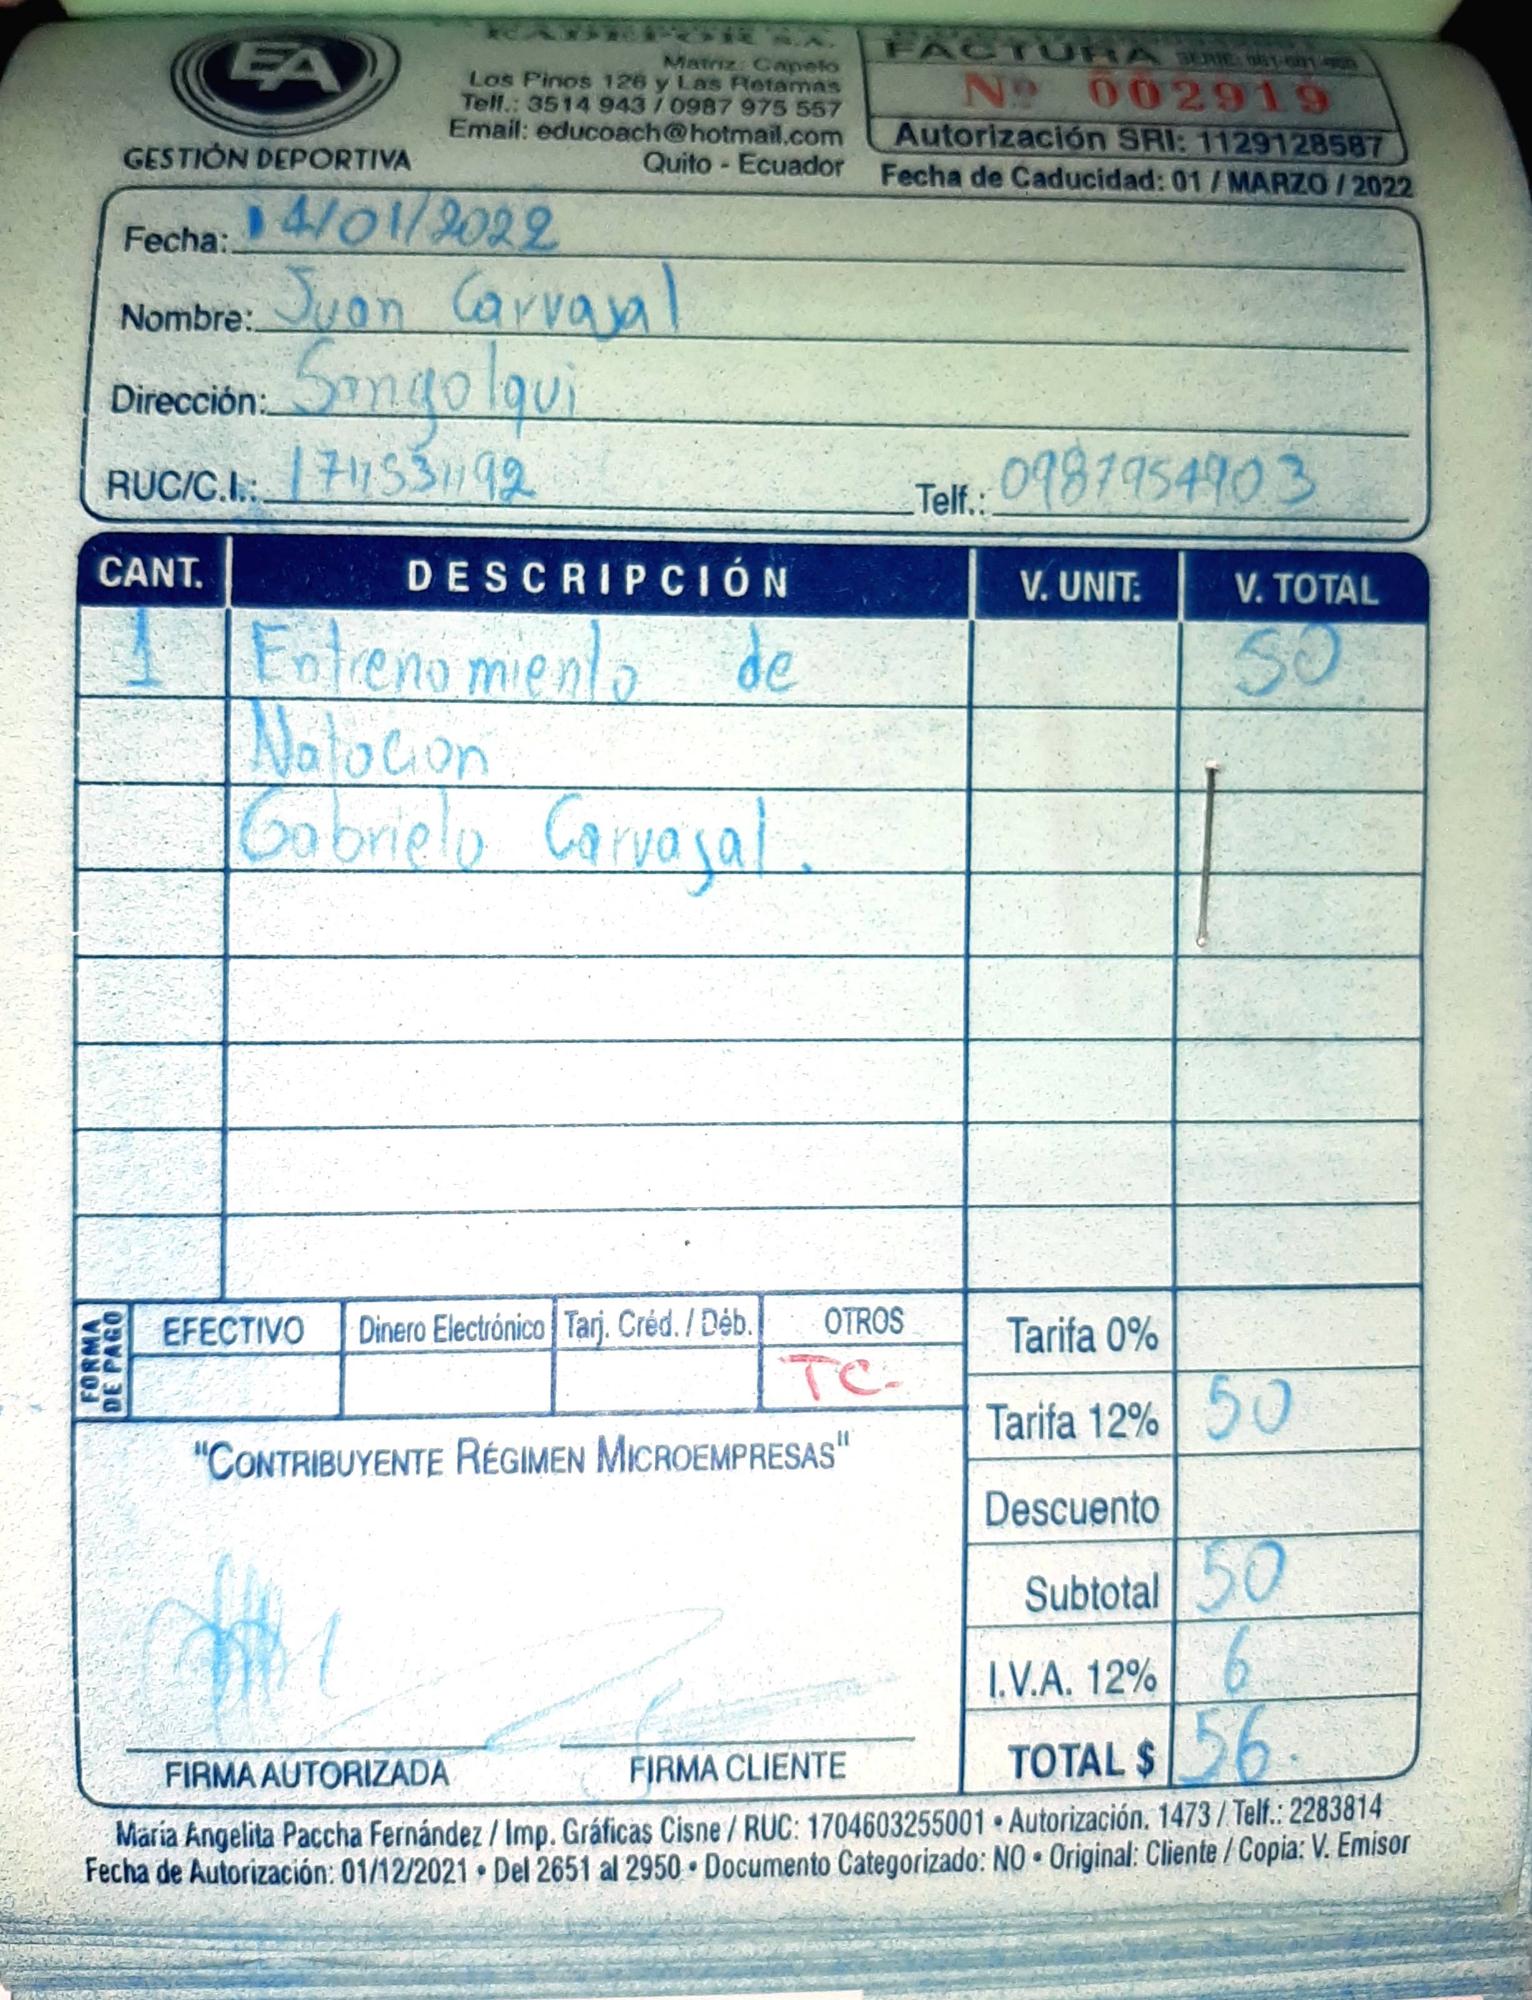 EA
GESTIÓN DEPORTIVA
Matriz: Capelo
Los Pinos 126 y Las Retamas
Telf.: 3514 943 / 0987 975 557
Email: educoach@hotmail.com
Quito - Ecuador
FACTURA
Nº 002919
Autorización SRI: 1129128587
Fecha de Caducidad: 01 / MARZO / 2022
Fecha: 14/01/2022
Nombre: Juan Carvajal
Dirección: Sangolqui
RUC/C.I.: Telf.: 0987954903
CANT. DESCRIPCIÓN V. UNIT: V. TOTAL
1 Entrenamiento de 50
Natacion
Gabriela Carvajal.
FORMA DE PAGO EFECTIVO Dinero Electrónico Tarj. Créd. / Déb. OTROS
TC.
Tarifa 0%
Tarifa 12% 50
Descuento
Subtotal 50
I.V.A. 12% 6
TOTAL $ 56.
"CONTRIBUYENTE RÉGIMEN MICROEMPRESAS"
FIRMA AUTORIZADA FIRMA CLIENTE
María Angelita Paccha Fernández / Imp. Gráficas Cisne / RUC: 1704603255001 • Autorización. 1473 / Telf.: 2283814
Fecha de Autorización: 01/12/2021 • Del 2651 al 2950 • Documento Categorizado: NO • Original: Cliente / Copia: V. Emisor